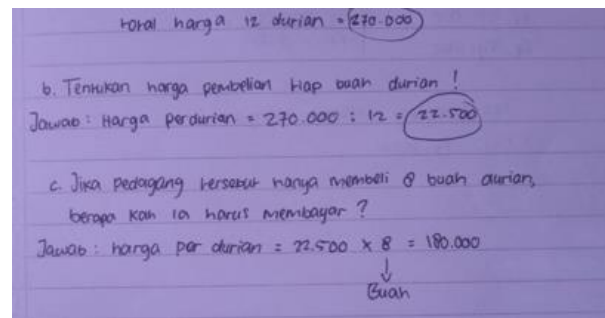 total harga 12 durian = 270.000
b. Tentukan harga pembelian tiap buah durian !
Jawab : Harga perdurian = 270.000 : 12 = 22.500
c. Jika pedagang tersebut hanya membeli 8 buah durian,
berapa kah ia harus membayar ?
Jawab : harga per durian = 22.500 x 8 = 180.000
↓
Buah